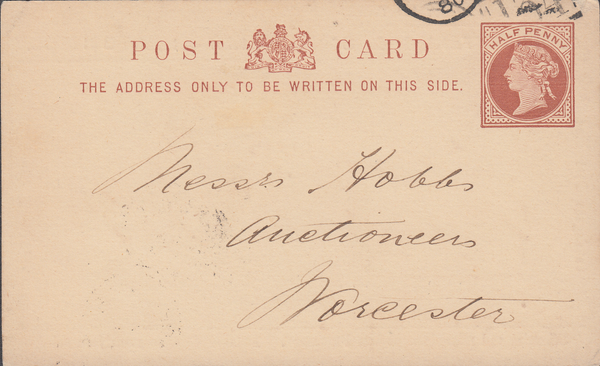 86
POST CARD
HALF PENNY
THE ADDRESS ONLY TO BE WRITTEN ON THIS SIDE.
Messrs Hobbs
Auctioneers
Worcester